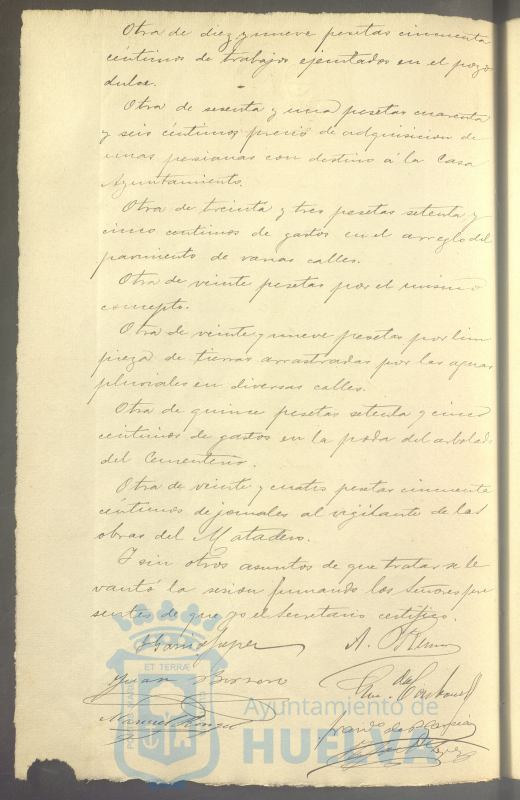 Otra de diez y nueve pesetas cincuenta
céntimos de trabajos ejecutados en el pozo
dulce.
Otra de sesenta y una pesetas cuarenta
y seis céntimos precio de adquisicion de
unas persianas con destino á la Casa
Ayuntamiento.
Otra de treinta y tres pesetas setenta y
cinco centimos de gastos en el arreglo del
pavimento de varias calles.
Otra de veinte pesetas por el mismo
concepto.
Otra de veinte y nueve pesetas por lim
pieza de tierras arrastradas por las aguas
pluviales en diversas calles.
Otra de quince pesetas setenta y cinco
centimos de gastos en la poda del arbolado
del Cementerio.
Otra de veinte y cuatro pesetas cincuenta
céntimos de jornales al vigilante de las
obras del Matadero.
I sin otros asuntos de que tratar se le
vantó la sesion firmando los Señores pre
sentes de que yo el Secretario certifico.
Garcia Lopez
Juan Borrero
Manuel
ET TERRÆ
Ayuntamiento de
HUELVA